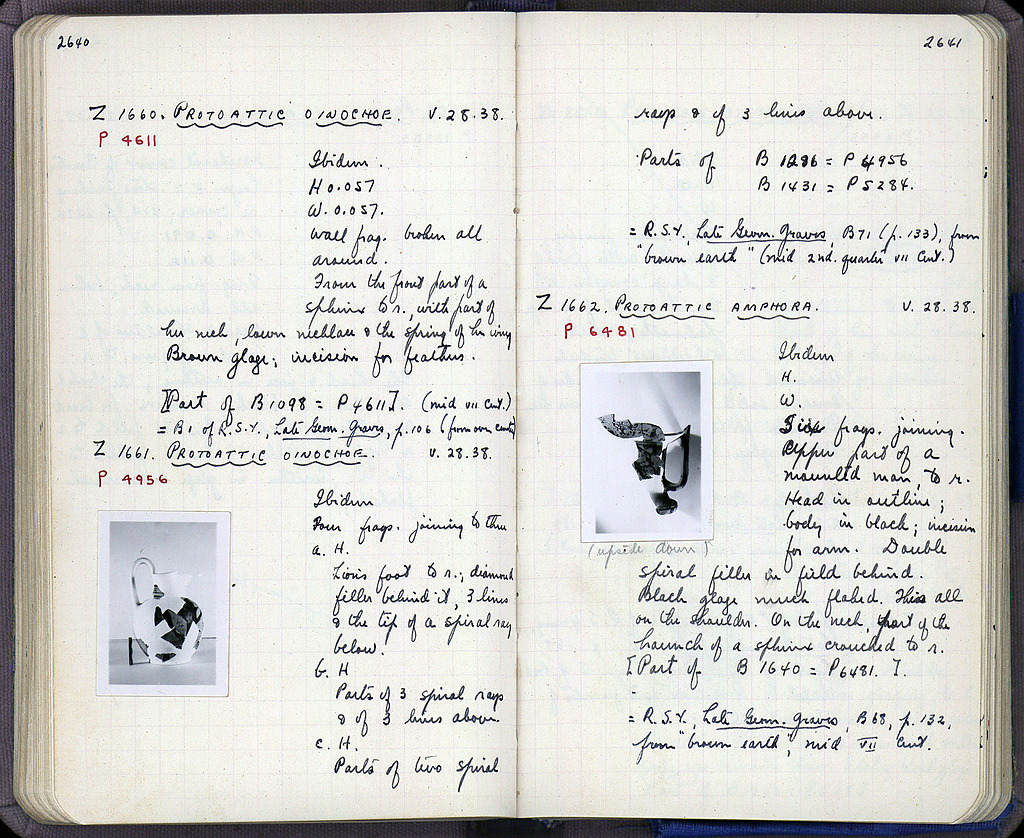 2640
Z 1660. PROTOATTIC OINOCHOE. V.28.38.
P 4611
Ibidem.
H 0.057
W. 0.057.
Wall frag. broken all
around.
From the front part of a
sphinx to r., with part of
her neck, lower necklace & the spring of her wing
Brown glaze; incision for feathers.
[Part of B 1098 = P 4611]. (mid VII Cent.)
= B1 of R.S.Y., Late Geom. Graves, p. 106 (from over
Z 1661. PROTOATTIC OINOCHOE. V.28.38.
P 4956
Ibidem
Four frags. joining to three
a. H.
Lion's foot to r.; diamond
filler behind it, 3 lines
& the tip of a spiral ray
below.
b. H
Parts of 3 spiral rays
& of 3 lines above.
c. H.
Parts of two spiral
2641
rays & of 3 lines above.
Parts of B 1286 = P 4956
B 1431 = P 5284.
= R.S.Y., Late Geom. Graves, B71 (p. 133), from
"brown earth" (mid 2nd. quarter VII Cent.)
Z 1662. PROTOATTIC AMPHORA. V.28.38.
P 6481
Ibidem
H.
W.
frags. joining.
Upper part of a
mounted man, to r.
Head in outline;
body in black; incision
for arm. Double
(upside down)
spiral filler in field behind.
Black glaze much flaked. This all
on the shoulder. On the neck, part of the
haunch of a sphinx crouched to r.
[Part of B 1640 = P 6481.].
= R.S.Y., Late Geom. Graves, B68, p. 132,
from "brown earth", mid VII Cent.